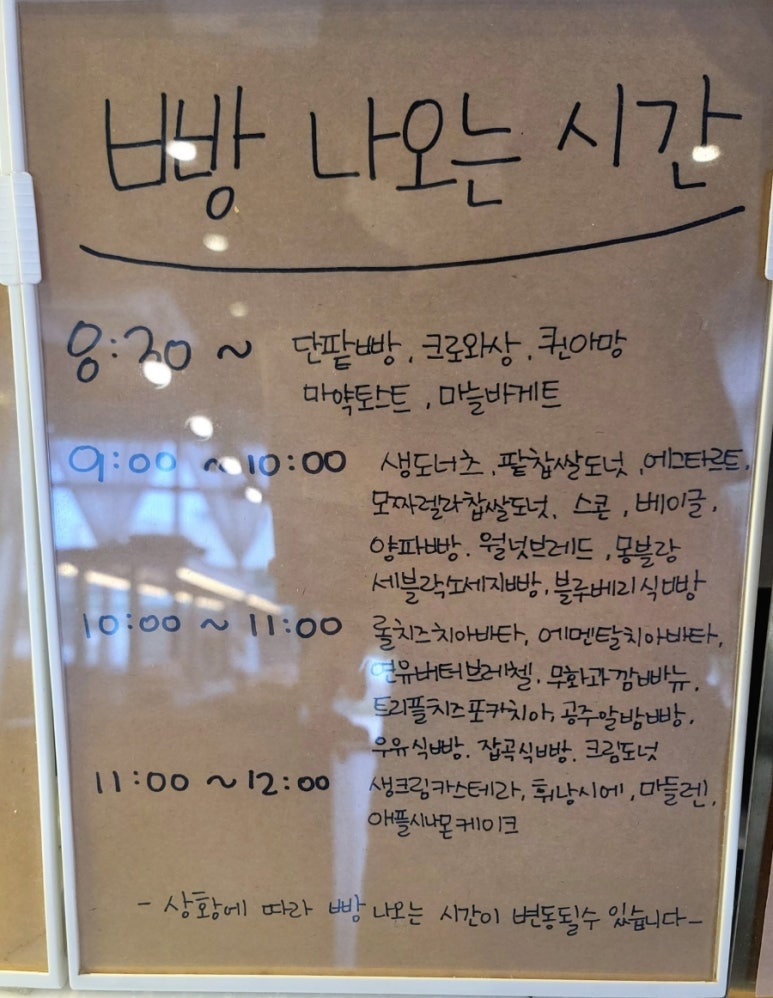 빵 나오는 시간
8:30 ~ 단팥빵, 크로와상, 퀸아망
마약토스트, 마늘바게트
9:00 ~ 10:00 생도너츠, 팥찹쌀도넛, 에그타르트,
모짜렐라찹쌀도넛, 스콘, 베이글,
양파빵. 월넛브레드, 몽블랑
세블락소세지빵, 블루베리식빵
10:00 ~ 11:00 롤치즈치아바타, 에멘탈치아바타,
연유버터브레첼, 무화과깜빠뉴,
트리플치즈포카치아, 공주알밤빵,
우유식빵. 잡곡식빵. 크림도넛
11:00 ~ 12:00 생크림카스테라, 휘낭시에, 마들렌,
애플시나몬케이크
- 상황에 따라 빵 나오는 시간이 변동될수 있습니다 -